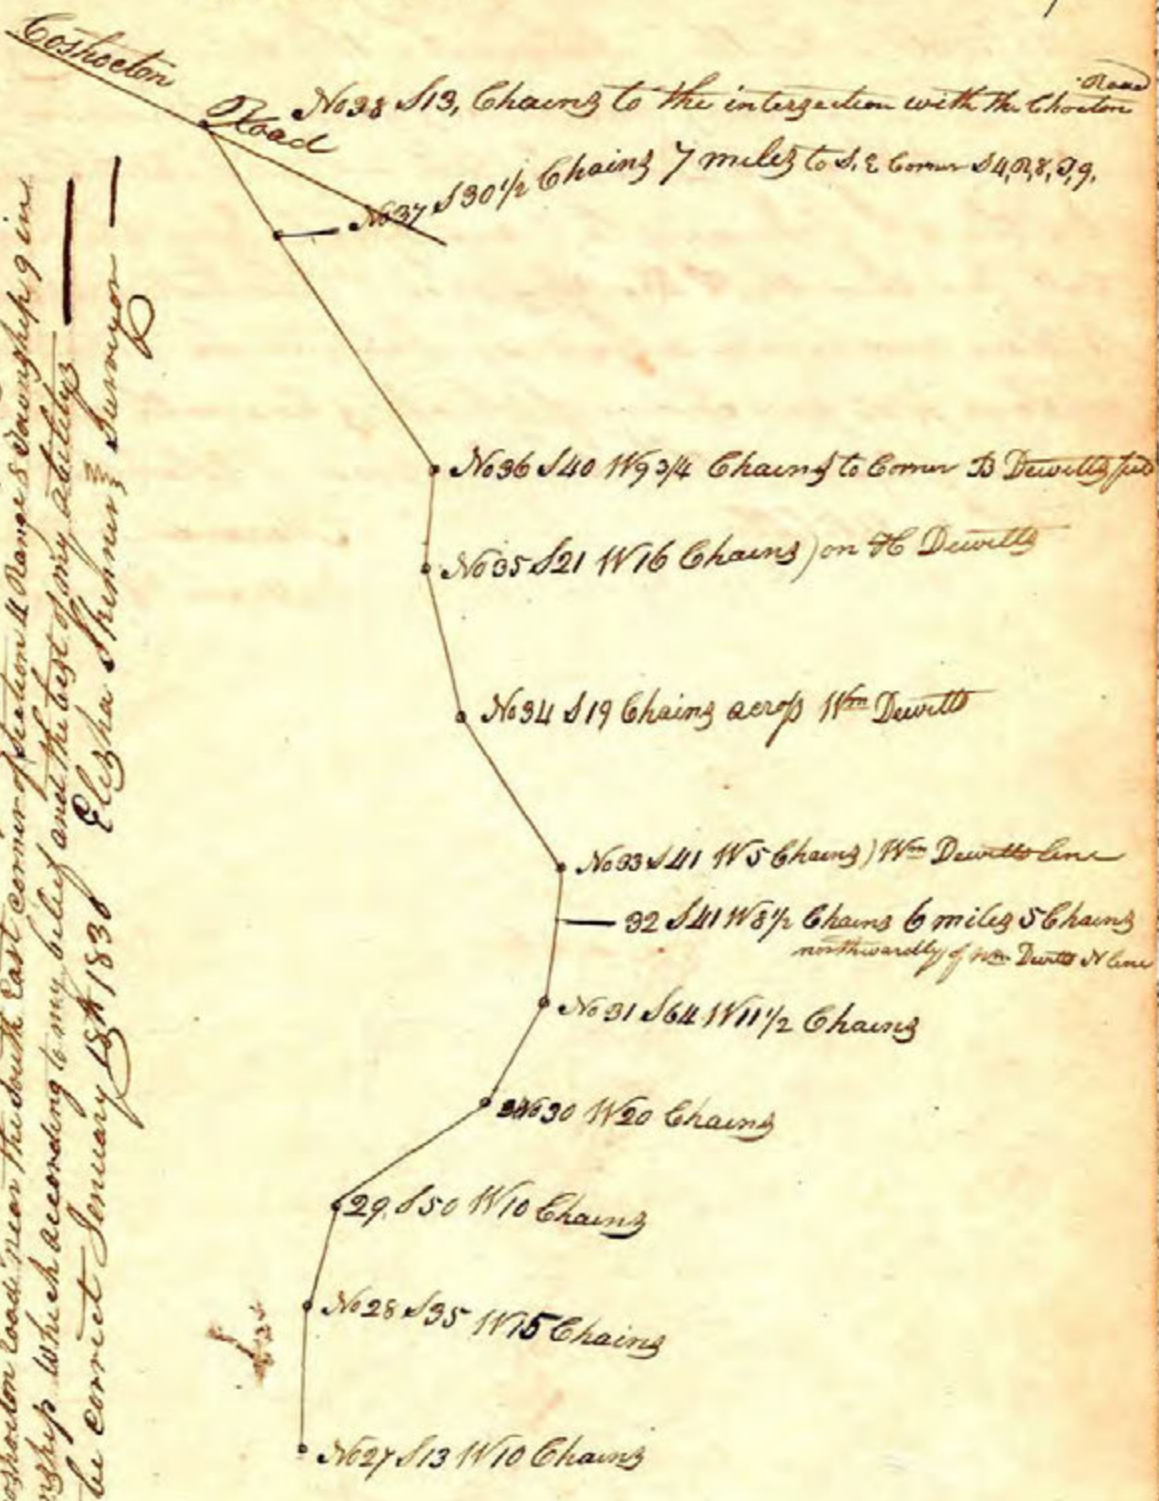 Coshocton
Road
No 38 S 13, Chains to the intersection with the Chocton Road
No 37 S 30 1/2 Chains 7 miles to S. E Corner S 4, R, 8, T, 9.
No 36 S 40 W 9 3/4 Chains to Corner B Dewitts
No 35 S 21 W 16 Chains) on H Dewitts
No 34 S 19 Chains across Wm Dewitts
No 33 S 41 W 5 Chains) Wm Dewitts line
32 S 41 W 8 1/2 Chains 6 miles 5 Chains
northwardly of Wm Dewitts N line
No 31 S 64 W 11 1/2 Chains
No 30 W 20 Chains
29. S 50 W 10 Chains
No 28 S 35 W 15 Chains
No 27 S 13 W 10 Chains
oshocton road near the South East corner of Section 4 Range 8 Township 9 in
nship which according to my belief and the best of my abilitys
be correct January 18th 1836 Elisha Skinner Surveyor